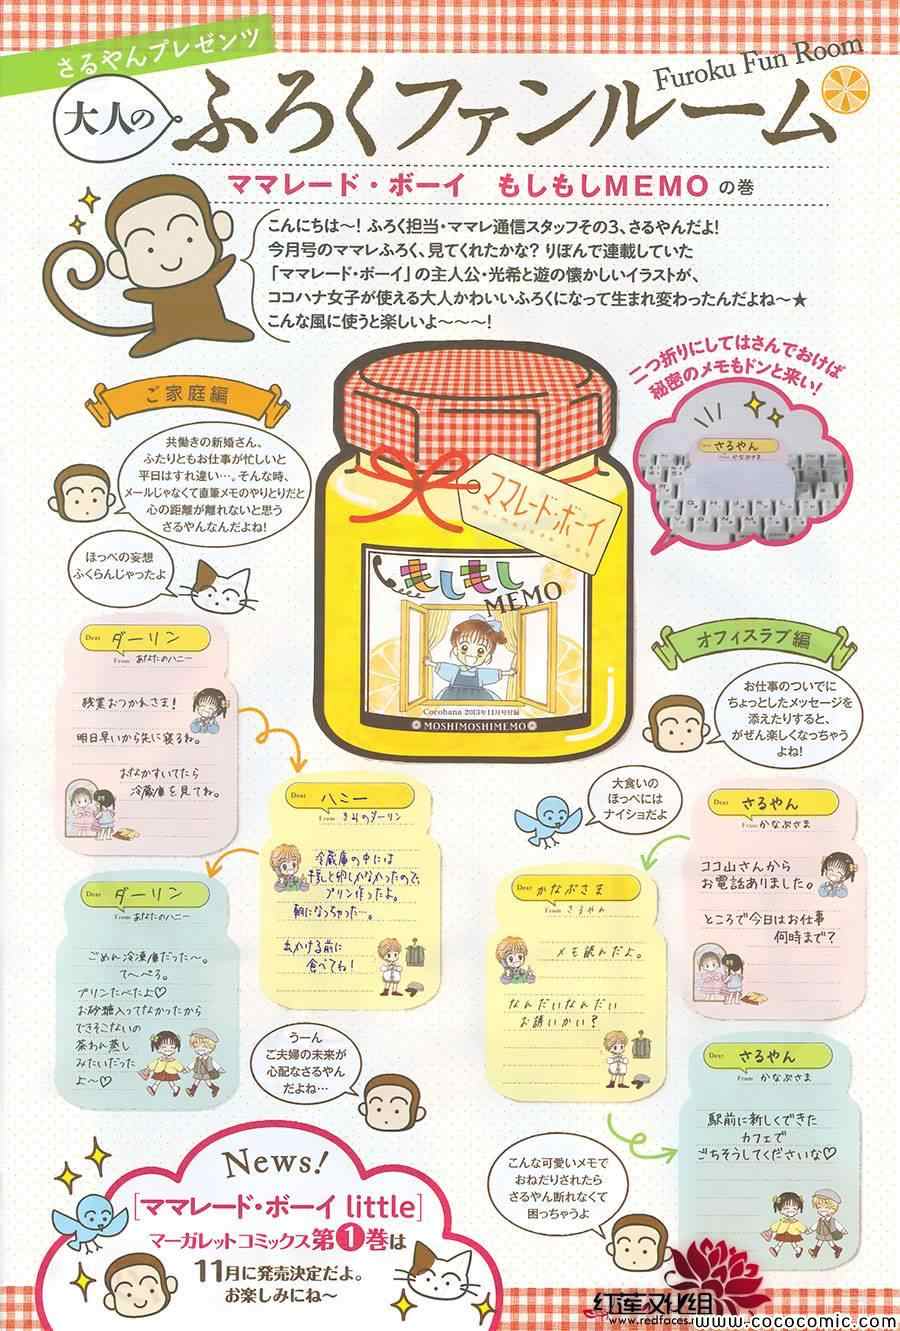 さるやんプレゼンツ
大人の
ふろくファンルーム
Furoku Fun Room
ママレード・ボーイ もしもしMEMO の巻
こんにちは〜! ふろく担当・ママレ通信スタッフその3、さるやんだよ!
今月号のママレふろく、見てくれたかな? りぼんで連載していた
「ママレード・ボーイ」の主人公・光希と遊の懐かしいイラストが、
ココハナ女子が使える大人かわいいふろくになって生まれ変わったんだよね〜★
こんな風に使うと楽しいよ〜〜〜!
二つ折りにしてはさんでおけば
秘密のメモもドンと来い!
さるやん
かなぶさま
ママレード・ボーイ
もしもし
MEMO
Cocohana 2013年11月号付録
MOSHIMOSHIMEMO
ご家庭編
共働きの新婚さん、
ふたりともお仕事が忙しいと
平日はすれ違い…。そんな時、
メールじゃなくて直筆メモのやりとりだと
心の距離が離れないと思う
さるやんなんだよね!
ほっぺの妄想
ふくらんじゃったよ
Dear ダーリン
From あなたのハニー
残業おつかれさま!
明日早いから先に寝るね。
おなかすいてたら
冷蔵庫を見てね。
Dear ハニー
From きみのダーリン
冷蔵庫の中には
牛乳と卵しかなかったので、
プリン作ったよ。
朝になっちゃった…。
出かける前に
食べてね!
Dear ダーリン
From あなたのハニー
ごめん冷凍庫だった〜。
て〜ぺろ。
プリンたべたよ♡
お砂糖入ってなかったから
できそこないの
茶わん蒸し
みたいだった
よ〜♡
うーん
ご夫婦の未来が
心配なさるやん
だよね…
オフィスラブ編
お仕事のついでに
ちょっとしたメッセージを
添えたりすると、
がぜん楽しくなっちゃう
よね!
大食いの
ほっぺには
ナイショだよ
Dear さるやん
From かなぶさま
ココ山さんから
お電話ありました。
ところで今日はお仕事
何時まで?
Dear かなぶさま
From さるやん
メモ読んだよ。
なんだいなんだい
お誘いかい?
Dear さるやん
From かなぶさま
駅前に新しくできた
カフェで
ごちそうしてくださいな♡
こんな可愛いメモで
おねだりされたら
さるやん断れなくて
困っちゃうよ
News!
[ママレード・ボーイ little]
マーガレットコミックス第1巻は
11月に発売決定だよ。
お楽しみにね〜
红莲汉化组
www.redfaces.ru
www.cococomic.com